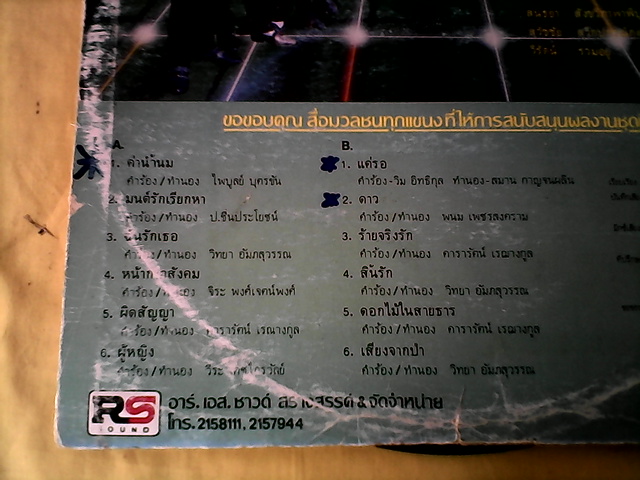 ขอขอบคุณ สื่อมวลชนทุกแขนงที่ให้การสนับสนุนผลงานชุด
A.
1. ค่าน้ำนม
คำร้อง/ทำนอง ไพบูลย์ บุตรขัน
2. มนต์รักเรียกหา
คำร้อง/ทำนอง ป.ชื่นประโยชน์
3. ฉันรักเธอ
คำร้อง/ทำนอง วิทยา อัมภสุวรรณ
4. หน้ากากสังคม
คำร้อง/ทำนอง จิระ พงศ์เจตน์พงศ์
5. ผิดสัญญา
คำร้อง/ทำนอง ดารารัตน์ เรณางกูล
6. ผู้หญิง
คำร้อง/ทำนอง
B.
1. แค่รอ
คำร้อง-วิม อิทธิกุล ทำนอง-สมาน กาญจนผลิน
2. ดาว
คำร้อง/ทำนอง พนม เพชรสงคราม
3. ร้ายจริงรัก
คำร้อง/ทำนอง ดารารัตน์ เรณางกูล
4. สิ้นรัก
คำร้อง/ทำนอง วิทยา อัมภสุวรรณ
5. ดอกไม้ในสายธาร
คำร้อง/ทำนอง ดารารัตน์ เรณางกูล
6. เสียงจากป่า
คำร้อง/ทำนอง วิทยา อัมภสุวรรณ
RS
SOUND
อาร์. เอส. ซาวด์ สร้างสรรค์ & จัดจำหน่าย
โทร. 2158111, 2157944